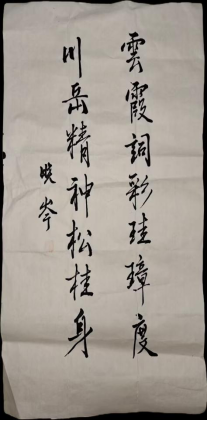 雲霞詞彩珪璋度
川岳精神松桂身
曉岑